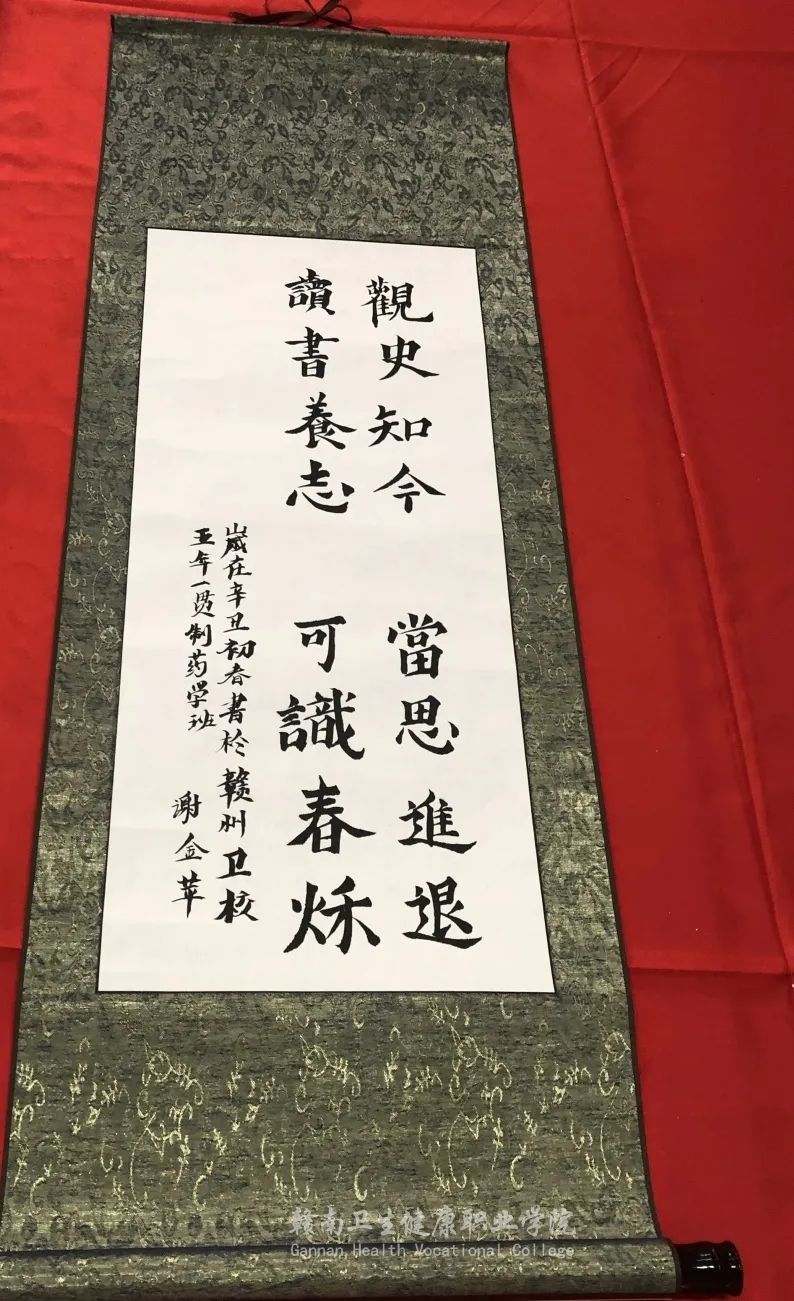 觀史知今 當思進退
讀書養志 可識春秌
歲在辛丑初春書於贛州卫校
五年一贯制药学班
谢金苹
赣南卫生健康职业学院
Gannan Health Vocational College